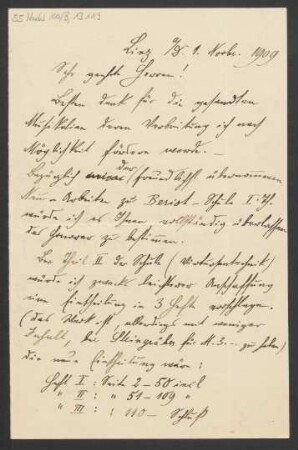 55 Nachl 110/B,12119
Linz a/D. 1. Novbr. 1909
Sehr geehrte Herren!
Besten Dank für die gesandten
Musikalien deren Verbreitung ich nach
Möglichkeit fördern werde. –
Bezüglich der freundlichst übernommenen
Neu-Arbeiten zu Beriot-Schule I. Th.
würde ich es Ihnen vollständig überlassen
das Honorar zu bestimmen.
Den Theil II der Schule (Virtuosentechnik)
würde ich zwecks leichterer Anschaffung
eine Eintheilung in 3 Hefte vorschlagen.
(das Werk ist, allerdings mit weniger
Inhalt, bei Steingräber für M. 3. – zu haben)
die neue Eintheilung wäre:
Heft I: Seite 2–50 incl
" II: " 51–109 "
" III: " 110 – Schluß